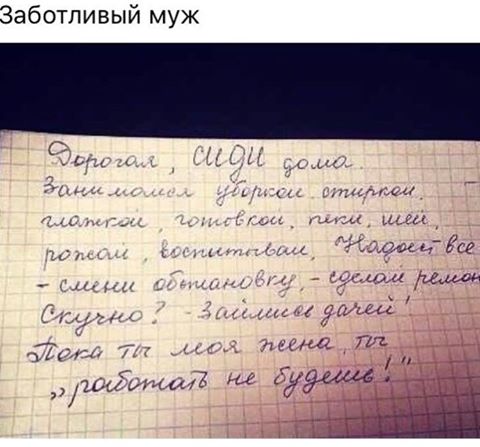 Заботливый муж
Дорогая, СИДИ дома.
Занимайся уборкой, стиркой,
глажкой, готовкой, пеки, шей,
рожай, воспитывай, Надоест все
- смени обстановку, - сделай ремон
Скучно? - Займись дачей!
Пока ты моя жена, ты
„работать не будешь!"